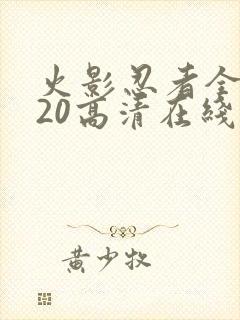 火影忍者全
20高清在线
黄少牧